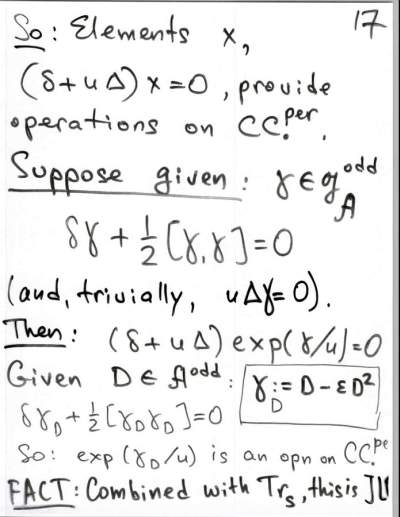 17
So: Elements x,
(δ+uΔ)x=0, provide
operations on CC.^per.
Suppose given: γ∈g_A^odd
δγ+½[γ,γ]=0
(and, trivially, uΔγ=0).
Then: (δ+uΔ)exp(γ/u)=0
Given D∈A^odd: γ_D:=D-εD²
δγ_D+½[γ_Dγ_D]=0
So: exp(γ_D/u) is an opn on CC.^pe
FACT: Combined with Tr_s, this is